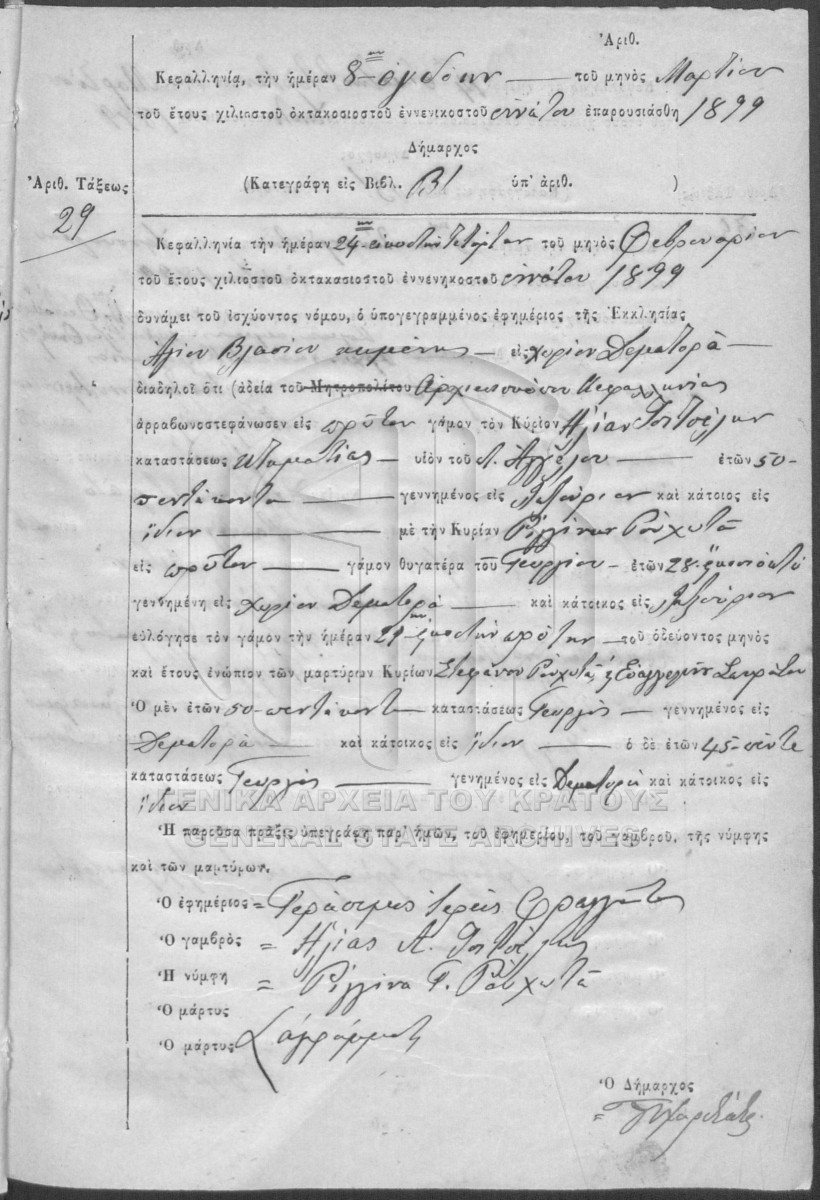 Ἀριθ.
Κεφαλληνία, τὴν ἡμέραν 8 ὀγδόην τοῦ μηνὸς Μαρτίου
τοῦ ἔτους χιλιοστοῦ ὀκτακοσιοστοῦ ἐννενικοστοῦ ἐννάτου ἐπαρουσιάσθη 1899
Δήμαρχος
Ἀριθ. Τάξεως
(Κατεγράφη εἰς Βιβλ. ΒΙ ὑπ' ἀριθ. )
29
Κεφαλληνία τὴν ἡμέραν 24 εἰκοστὴν τετάρτην τοῦ μηνὸς Φεβρουαρίου
τοῦ ἔτους χιλιοστοῦ ὀκτακασιοστοῦ ἐννενηκοστοῦ ἐννάτου 1899
δυνάμει τοῦ ἰσχύοντος νόμου, ὁ ὑπογεγραμμένος ἐφημέριος τῆς Ἐκκλησίας
Ἁγίου Βλασίου κειμένης εἰς χωρίον Δεματορᾶ
διαδηλοῖ ὅτι (ἀδεία τοῦ Μητροπολίτου Ἀρχιεπισκόπου Κεφαλληνίας
ἀρραβωνοστεφάνωσεν εἰς πρῶτον γάμον τὸν Κύριον Ἠλίαν
καταστάσεως κτηματίας υἱὸν τοῦ Ἀγγέλου ἐτῶν 50
πεντήκοντα γεννημένος εἰς Ληξούριον καὶ κάτοιος εἰς
ἴδιον μὲ τὴν Κυρίαν Ρεγγίναν Ρουχωτᾶ
εἰς πρῶτον γάμον θυγατέρα τοῦ Γεωργίου ἐτῶν 28 εἰκοσιοκτὸ
γενθημένη εἰς χωρίον Δεματορᾶ καὶ κάτοικος εἰς Ληξούριον
εὐλόγησε τὸν γάμον τὴν ἡμέραν 21 εἰκοστὴν πρώτην τοῦ ὁδεύοντος μηνὸς
καὶ ἔτους ἐνώπιον τῶν μαρτύρων Κυρίων Στεφάνου Ρουχωτᾶ
Ὁ μὲν ἐτῶν 50 πεντήκοντα καταστάσεως Γεωργὸς γεννημένος εἰς
Δεματορᾶ καὶ κάτοικος εἰς ἴδιον ὁ δὲ ἐτῶν 45 πέντε
καταστάσεως Γεωργὸς γενημένος εἰς Δεματορᾶ καὶ κάτοικος εἰς
ἴδιον
ΓΕΝΙΚΑ ΑΡΧΕΙΑ ΤΟΥ ΚΡΑΤΟΥΣ
Ἡ παροῦσα πρᾶξις ὑπεγράφη παρ' ἡμῶν, τοῦ ἐφημερίου, τοῦ γαμβροῦ, τῆς νύμφης
GENERAL STATE ARCHIVES
καὶ τῶν μαρτύρων.
Ὁ ἐφημέριος = Γεράσιμος Ἱερεὺς
Ὁ γαμβρὸς = Ἠλίας Α.
Ἡ νύμφη = Ρεγγίνα Γ. Ρουχωτᾶ
Ὁ μάρτυς
Ὁ μάρτυς ἀγράμματοι
Ὁ Δήμαρχος